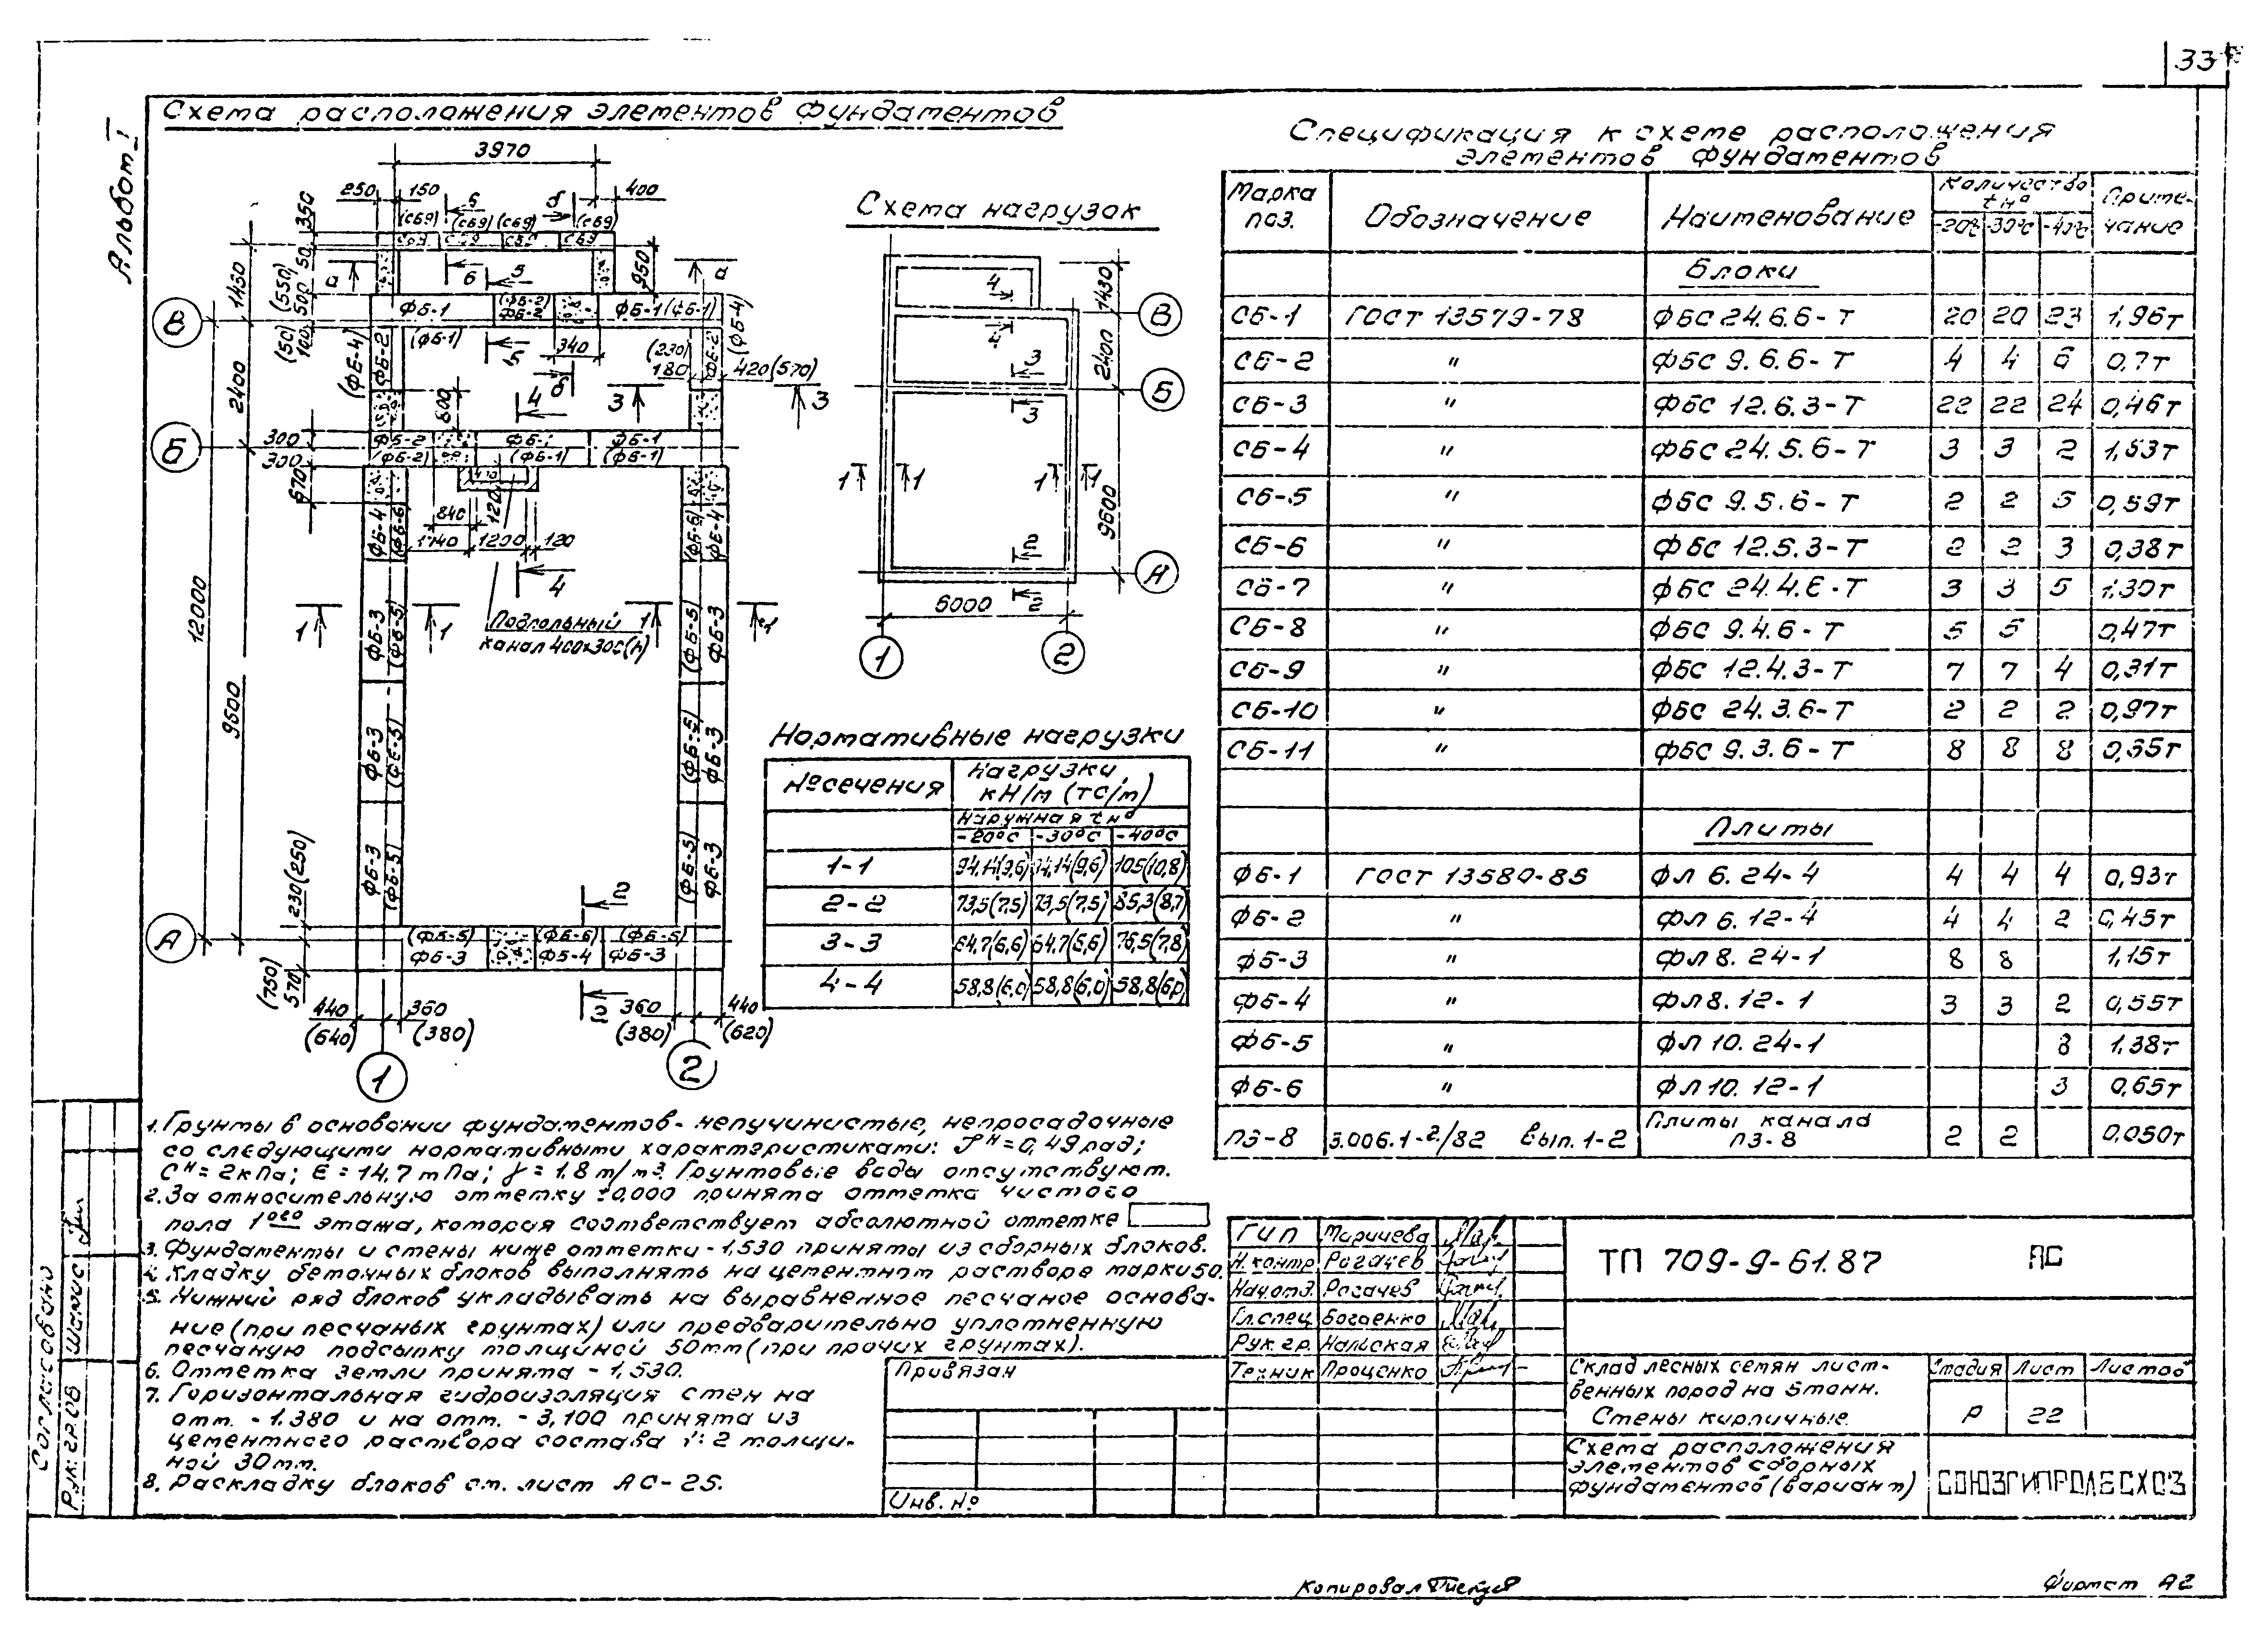 33
Альбом I
Схема расположения элементов фундаментов
3970
250 150 400
(СБ9) (СБ9) (СБ9) (СБ9)
СБ9 СБ9 СБ9 СБ9
350
50
(550) 500
(50) 100
1430
2400
12000
9600
950
ФБ-1 (ФБ-2) ФБ-2 ФБ-1 (ФБ-1)
(ФБ-1)
(ФБ-4) ФБ-2
ФБ-2 (ФБ-4)
340
(230) 180
420(570)
600
300
300
670
ФБ-2 ФБ-1 ФБ-1
(ФБ-2) (ФБ-1) (ФБ-1)
840 120
1740 1200 120
ФБ-4 (ФБ-6)
(ФБ-6) ФБ-4
ФБ-3 (ФБ-5)
(ФБ-5) ФБ-3
ФБ-3 (ФБ-5)
(ФБ-5) ФБ-3
ФБ-3 (ФБ-5)
(ФБ-5) ФБ-3
Подпольный
канал 400х300(h)
230(250)
(750) 570
(ФБ-5) (ФБ-6) (ФБ-5)
ФБ-3 ФБ-4 ФБ-3
440 360 360 440
(640) (380) (380) (620)
В
Б
А
1 2
Схема нагрузок
1430
2400
9600
6000
В
Б
А
1 2
Нормативные нагрузки
№ сечения Нагрузки, кН/м (тс/м)
Наружная tн°
-20°С -30°С -40°С
1-1 94,14(9,6) 94,14(9,6) 105(10,8)
2-2 73,5(7,5) 73,5(7,5) 85,3(8,7)
3-3 64,7(6,6) 64,7(6,6) 76,5(7,8)
4-4 58,8(6,0) 58,8(6,0) 58,8(6,0)
Спецификация к схеме расположения
элементов фундаментов
Марка поз. Обозначение Наименование Количество tн° Приме-
-20°С -30°С -40°С чание
Блоки
СБ-1 ГОСТ 13579-78 ФБС 24.6.6-Т 20 20 23 1,96т
СБ-2 " ФБС 9.6.6-Т 4 4 6 0,7т
СБ-3 " ФБС 12.6.3-Т 22 22 24 0,46т
СБ-4 " ФБС 24.5.6-Т 3 3 2 1,63т
СБ-5 " ФБС 9.5.6-Т 2 2 5 0,59т
СБ-6 " ФБС 12.5.3-Т 2 2 3 0,38т
СБ-7 " ФБС 24.4.6-Т 3 3 5 1,30т
СБ-8 " ФБС 9.4.6-Т 5 5 0,47т
СБ-9 " ФБС 12.4.3-Т 7 7 4 0,31т
СБ-10 " ФБС 24.3.6-Т 2 2 2 0,97т
СБ-11 " ФБС 9.3.6-Т 8 8 8 0,35т
Плиты
ФБ-1 ГОСТ 13580-85 ФЛ 6.24-4 4 4 4 0,93т
ФБ-2 " ФЛ 6.12-4 4 4 2 0,45т
ФБ-3 " ФЛ 8.24-1 8 8 1,15т
ФБ-4 " ФЛ 8.12-1 3 3 2 0,55т
ФБ-5 " ФЛ 10.24-1 8 1,38т
ФБ-6 " ФЛ 10.12-1 3 0,65т
ПЗ-8 3.006.1-2/82 Вып. 1-2 Плиты канала ПЗ-8 2 2 0,050т
1. Грунты в основании фундаментов - непучинистые, непросадочные
со следующими нормативными характеристиками: φн = 0,49 рад;
Сн = 2кПа; Е = 14,7 мПа; γ = 1.8 т/м3. Грунтовые воды отсутствуют.
2. За относительную отметку ±0,000 принята отметка чистого
пола 1ого этажа, которая соответствует абсолютной отметке
3. Фундаменты и стены ниже отметки -1,530 приняты из сборных блоков.
4. Кладку бетонных блоков выполнять на цементном растворе марки 50.
5. Нижний ряд блоков укладывать на выравненное песчаное основа-
ние (при песчаных грунтах) или предварительно уплотненную
песчаную подсыпку толщиной 50мм (при прочих грунтах).
6. Отметка земли принята - 1,530.
7. Горизонтальная гидроизоляция стен на
отм. - 1.380 и на отм. - 3,100 принята из
цементного раствора состава 1:2 толщи-
ной 30мм.
8. Раскладку блоков см. лист АС-25.
Согласовано
Рук. гр. ОВ
Привязан
Инв. №
ГИП Маричева
Н.контр Рогачев
Нач.отд. Рогачев
Гл.спец Богаенко
Рук. гр. Нальская
Техник Проценко
ТП 709-9-61.87 АС
Склад лесных семян лист-
венных пород на 5тонн.
Стены кирпичные
Стадия Лист Листов
Р 22
Схема расположения
элементов сборных
фундаментов (вариант)
СОЮЗГИПРОЛЕСХОЗ
Копировал
Формат А2